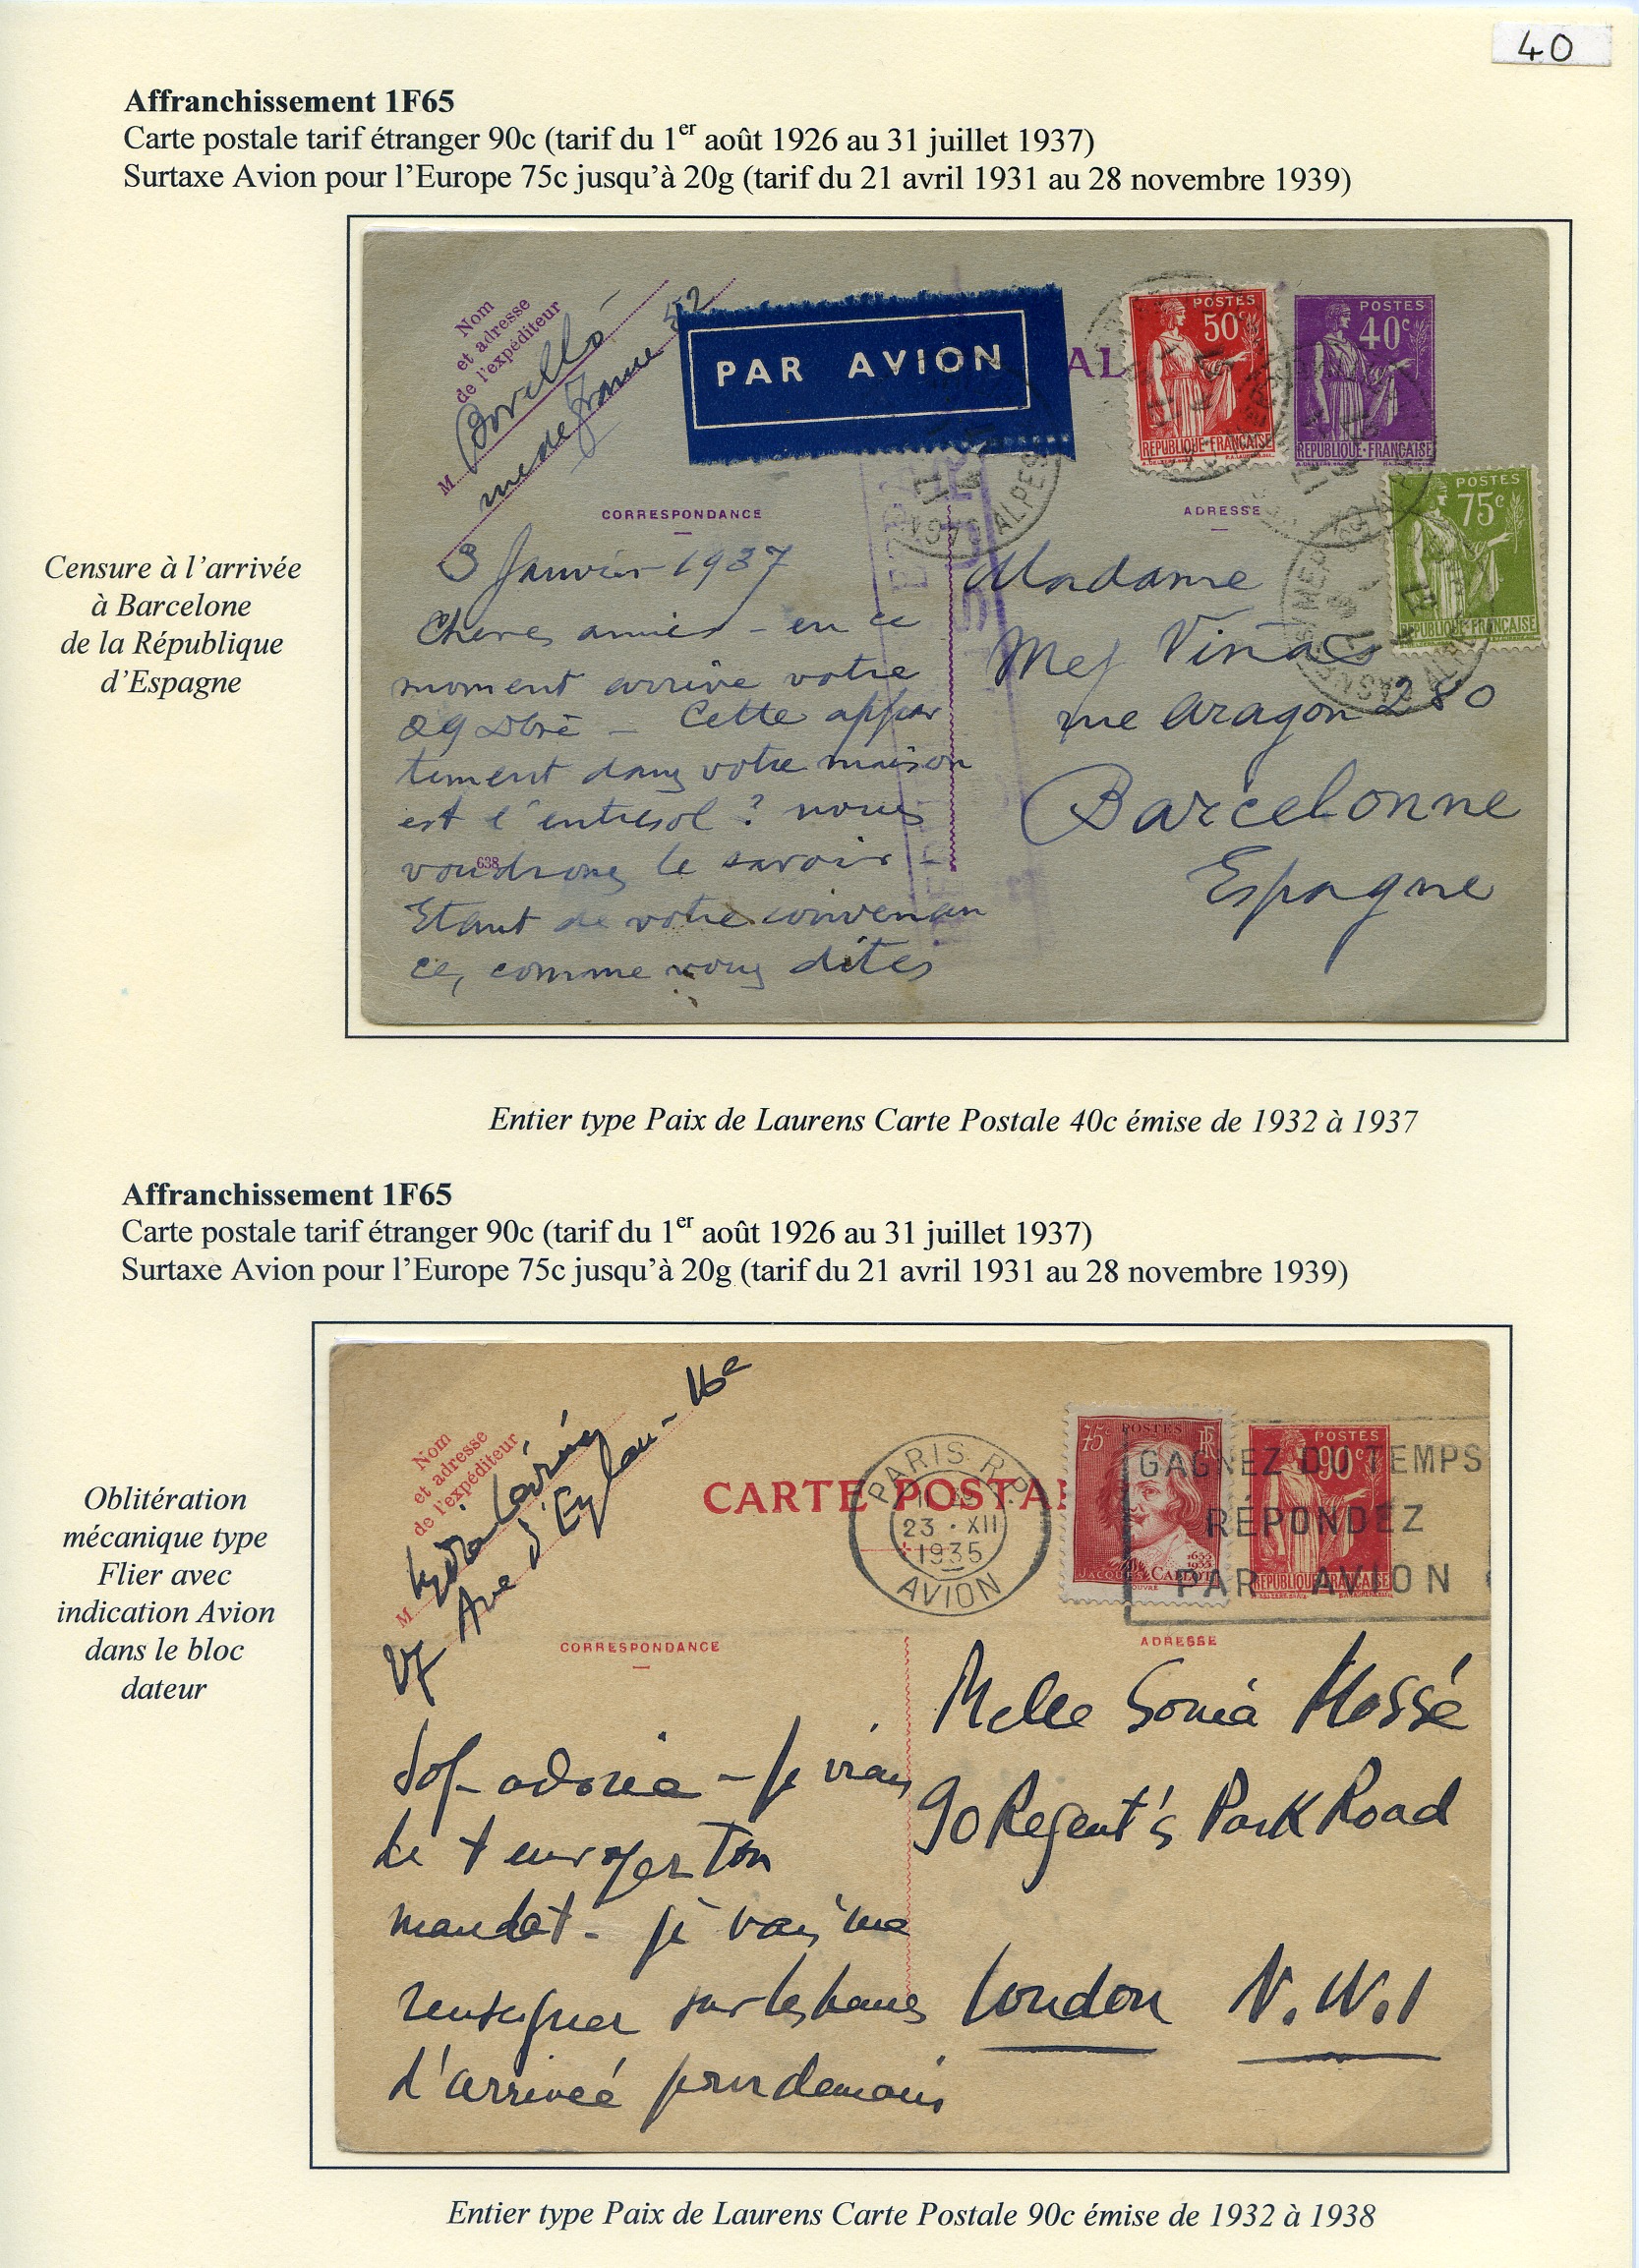 40
Affranchissement 1F65
Carte postale tarif étranger 90c (tarif du 1er août 1926 au 31 juillet 1937)
Surtaxe Avion pour l'Europe 75c jusqu'à 20g (tarif du 21 avril 1931 au 28 novembre 1939)
Censure à l'arrivée
à Barcelone
de la République
d'Espagne
Nom
et adresse
de l'expéditeur
M
rue de france 52
PAR AVION
AL
POSTES
50c
REPUBLIQUE·FRANÇAISE
POSTES
40c
REPUBLIQUE·FRANÇAISE
POSTES
75c
REPUBLIQUE·FRANÇAISE
CORRESPONDANCE
3 Janvier 1937
Cheres amies - en ce
moment arrive votre
29 Dbre - Cette appar
tement dans votre maison
est l'entresol ? nous
voudrons le savoir
638
Etant de votre convenan
ce, comme vous dites
ADRESSE
Madame
Vinas
rue Aragon 280
Barcelonne
Espagne
Entier type Paix de Laurens Carte Postale 40c émise de 1932 à 1937
Affranchissement 1F65
Carte postale tarif étranger 90c (tarif du 1er août 1926 au 31 juillet 1937)
Surtaxe Avion pour l'Europe 75c jusqu'à 20g (tarif du 21 avril 1931 au 28 novembre 1939)
Oblitération
mécanique type
Flier avec
indication Avion
dans le bloc
dateur
Nom
et adresse
de l'expéditeur
M
Ave d'Eylau - 16e
CARTE POSTA
PARIS R.P.
23 · XII
1935
AVION
75c POSTES RF
1635
1935
JACQUES CALLOT
POSTES
90c
REPUBLIQUE FRANÇAISE
GAGNEZ DU TEMPS
RÉPONDEZ
PAR AVION
CORRESPONDANCE
adorée - je viens
de t'envoyer ton
mandat - je vais me
renseigner sur les heures
d'arrivée pour demain
ADRESSE
Melle Sonia Mossé
90 Regent's Park Road
London N.W.1
Entier type Paix de Laurens Carte Postale 90c émise de 1932 à 1938